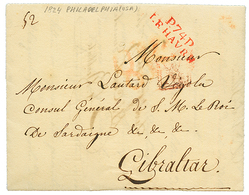 1824 PHILADELPHIA (USA)
52
P.74.P.
LE HAVRE
Monsieur
Monsieur Lautard Vignolo
Consul Général de S. M. Le Roi
de Sardaigne &c &c &c
Gibraltar.